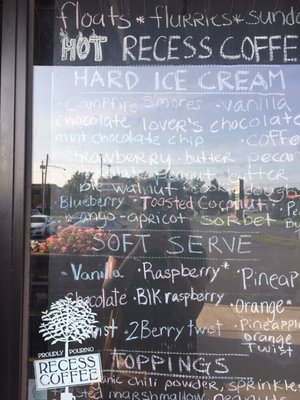 floats * flurries * sunda
HOT RECESS COFFEE
HARD ICE CREAM
· Campfire Smores · vanilla
chocolate lover's chocolate
mint chocolate chip · coffe
strawberry · butter pecan
butter
walnut
Blueberry · Toasted Coconut · Pe
apricot sorbet · By
SOFT SERVE
· Vanilla · Raspberry* · Pineap
Chocolate · Blk raspberry
· Orange*
twist · 2Berry twist · Pineapple
orange
Twist
TOPPINGS
chili powder, sprinkles
toasted marshmallow, peanuts
PROUDLY POURING
RECESS
COFFEE